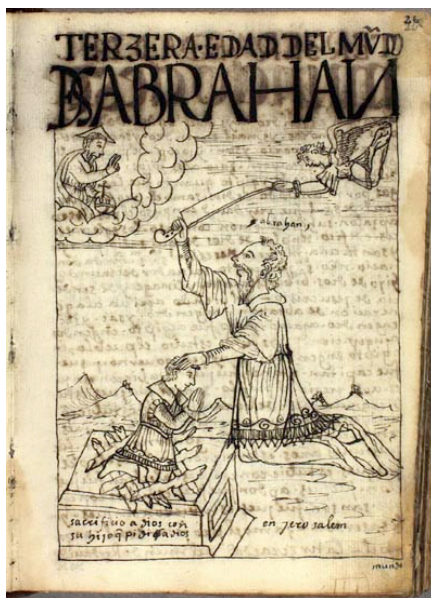 26
TERZERA·EDAD DEL MŪDO
DSABRAHAN
abrahan
sacrificio a dios con
su hijo q̄ pidio a dios
en jerusalem
mundo